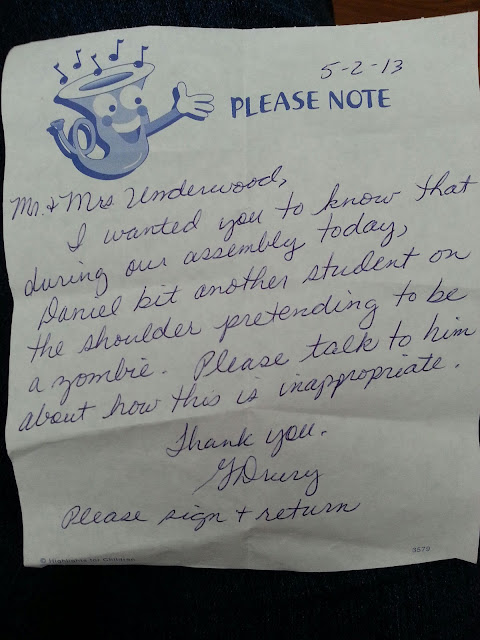 5-2-13
PLEASE NOTE
Mr. + Mrs Underwood,
I wanted you to know that
during our assembly today,
Daniel bit another student on
the shoulder pretending to be
a zombie. Please talk to him
about how this is inappropriate.
Thank you.
GDrury
Please sign + return
© Highlights for Children
3579